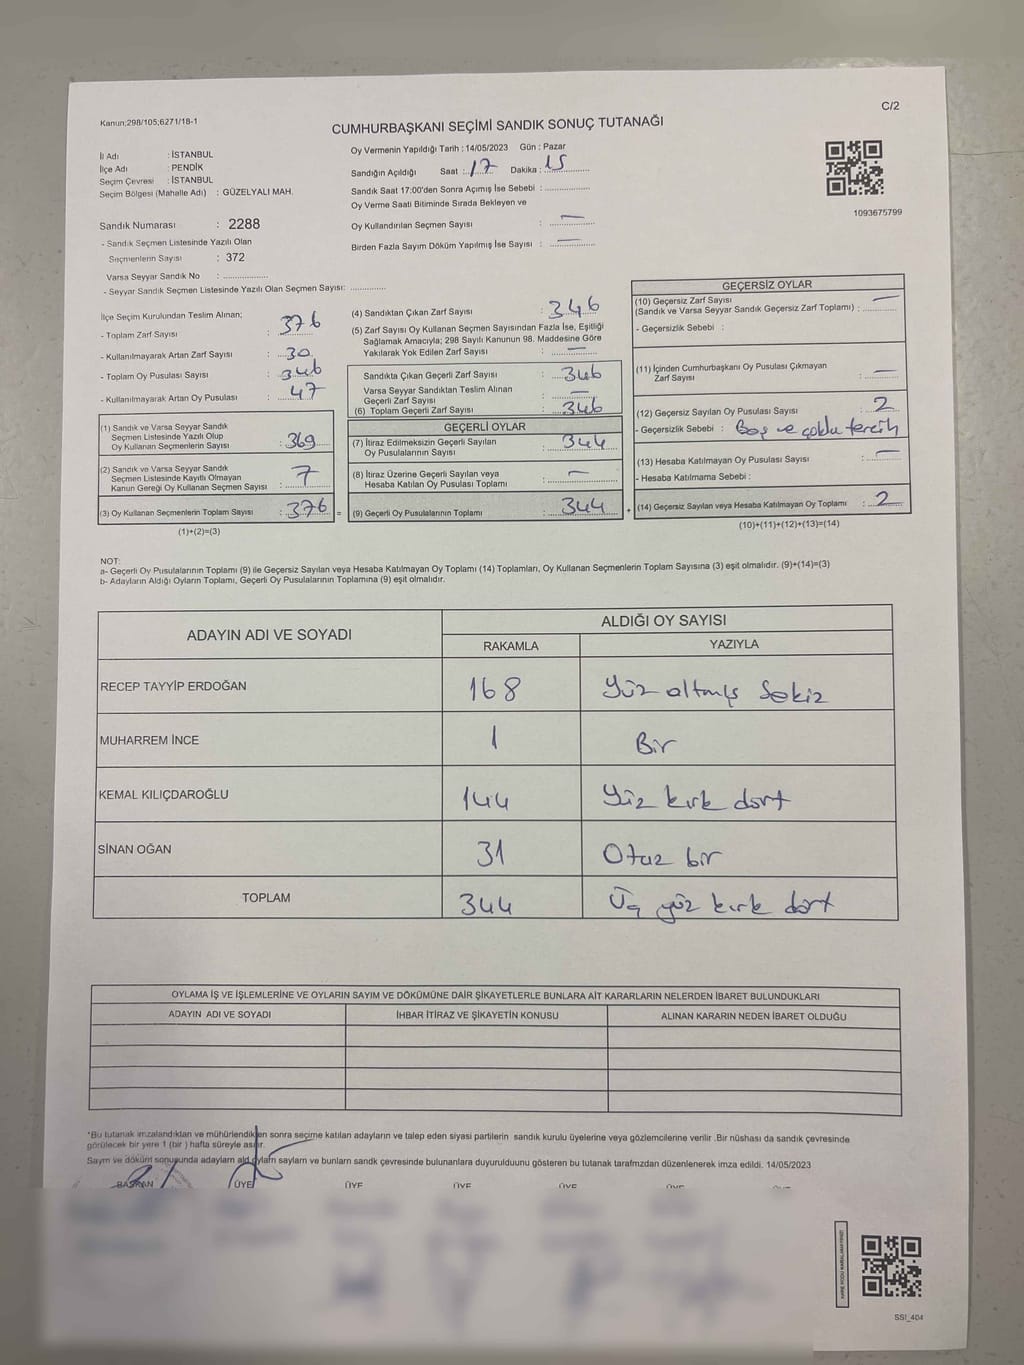 Kanun;298/105;6271/18-1
C/2
CUMHURBAŞKANI SEÇİMİ SANDIK SONUÇ TUTANAĞI
İl Adı : İSTANBUL
İlçe Adı : PENDİK
Seçim Çevresi : İSTANBUL
Seçim Bölgesi (Mahalle Adı) : GÜZELYALI MAH.
Sandık Numarası : 2288
- Sandık Seçmen Listesinde Yazılı Olan
Seçmenlerin Sayısı : 372
Varsa Seyyar Sandık No : ..................
- Seyyar Sandık Seçmen Listesinde Yazılı Olan Seçmen Sayısı: ..............
Oy Vermenin Yapıldığı Tarih : 14/05/2023 Gün : Pazar
Sandığın Açıldığı Saat : 17 Dakika : 15
Sandık Saat 17:00'den Sonra Açımış İse Sebebi : ..................
Oy Verme Saati Bitiminde Sırada Bekleyen ve
Oy Kullandırılan Seçmen Sayısı : —
Birden Fazla Sayım Döküm Yapılmış İse Sayısı : —
1093675799
İlçe Seçim Kurulundan Teslim Alınan;
- Toplam Zarf Sayısı : 376
- Kullanılmayarak Artan Zarf Sayısı : 30
- Toplam Oy Pusulası Sayısı : 346
- Kullanılmayarak Artan Oy Pusulası : 47
(1) Sandık ve Varsa Seyyar Sandık
Seçmen Listesinde Yazılı Olup
Oy Kullanan Seçmenlerin Sayısı : 369
(2) Sandık ve Varsa Seyyar Sandık
Seçmen Listesinde Kayıtlı Olmayan
Kanun Gereği Oy Kullanan Seçmen Sayısı : 7
(3) Oy Kullanan Seçmenlerin Toplam Sayısı : 376 =
(1)+(2)=(3)
(4) Sandıktan Çıkan Zarf Sayısı : 346
(5) Zarf Sayısı Oy Kullanan Seçmen Sayısından Fazla İse, Eşitliği
Sağlamak Amacıyla; 298 Sayılı Kanunun 98. Maddesine Göre
Yakılarak Yok Edilen Zarf Sayısı : —
Sandıkta Çıkan Geçerli Zarf Sayısı : 346
Varsa Seyyar Sandıktan Teslim Alınan
Geçerli Zarf Sayısı : —
(6) Toplam Geçerli Zarf Sayısı : 346
GEÇERLİ OYLAR
(7) İtiraz Edilmeksizin Geçerli Sayılan
Oy Pusulalarının Sayısı : 344
(8) İtiraz Üzerine Geçerli Sayılan veya
Hesaba Katılan Oy Pusulası Toplamı : —
(9) Geçerli Oy Pusulalarının Toplamı : 344 +
GEÇERSİZ OYLAR
(10) Geçersiz Zarf Sayısı
(Sandık ve Varsa Seyyar Sandık Geçersiz Zarf Toplamı) : —
- Geçersizlik Sebebi :
(11) İçinden Cumhurbaşkanı Oy Pusulası Çıkmayan
Zarf Sayısı : —
(12) Geçersiz Sayılan Oy Pusulası Sayısı : 2
- Geçersizlik Sebebi : Boş ve çoklu tercih
(13) Hesaba Katılmayan Oy Pusulası Sayısı : —
- Hesaba Katılmama Sebebi :
(14) Geçersiz Sayılan veya Hesaba Katılmayan Oy Toplamı : 2
(10)+(11)+(12)+(13)=(14)
NOT:
a- Geçerli Oy Pusulalarının Toplamı (9) ile Geçersiz Sayılan veya Hesaba Katılmayan Oy Toplamı (14) Toplamları, Oy Kullanan Seçmenlerin Toplam Sayısına (3) eşit olmalıdır. (9)+(14)=(3)
b- Adayların Aldığı Oyların Toplamı, Geçerli Oy Pusulalarının Toplamına (9) eşit olmalıdır.
ADAYIN ADI VE SOYADI ALDIĞI OY SAYISI
RAKAMLA YAZIYLA
RECEP TAYYİP ERDOĞAN 168 Yüz altmış Sekiz
MUHARREM İNCE 1 Bir
KEMAL KILIÇDAROĞLU 144 Yüz kırk dört
SİNAN OĞAN 31 Otuz bir
TOPLAM 344 Üç yüz kırk dört
OYLAMA İŞ VE İŞLEMLERİNE VE OYLARIN SAYIM VE DÖKÜMÜNE DAİR ŞİKAYETLERLE BUNLARA AİT KARARLARIN NELERDEN İBARET BULUNDUKLARI
ADAYIN ADI VE SOYADI İHBAR İTİRAZ VE ŞİKAYETİN KONUSU ALINAN KARARIN NEDEN İBARET OLDUĞU
*Bu tutanak imzalandıktan ve mühürlendikten sonra seçime katılan adayların ve talep eden siyasi partilerin sandık kurulu üyelerine veya gözlemcilerine verilir .Bir nüshası da sandık çevresinde
görülecek bir yere 1 (bir ) hafta süreyle asılır.
Sayım ve döküm sonuşunda adayların ald oyların saylarn ve bunlarn sandk çevresinde bulunanlara duyurulduunu gösteren bu tutanak tarafmzdan düzenlenerek imza edildi. 14/05/2023
BAŞKAN ÜYE ÜYE ÜYE ÜYE
KARE KODU KARALAMAYINIZ!
SSI_404